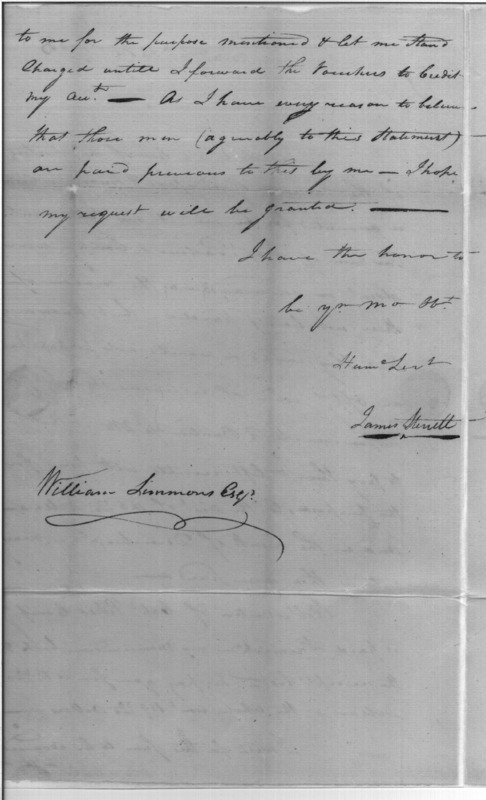 to me for the purpose mentioned & let me stand
Charged untill I forward the Vouchers to Credit
my Acct. — As I have every reason to believe
that those men (agreeably to this Statement)
are paid previous to this by me — I hope
my request will be granted. —
I have the honor to
be yr mo Obt.
Humc Servt
James Sterrett
William Simmons Esqr.